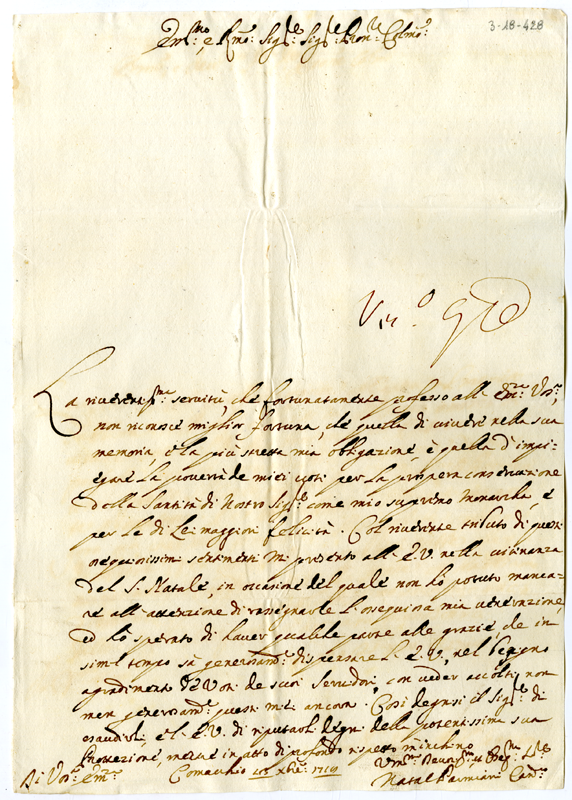 3-18-428
Em:mo e Rmo: Sig:re Sig:re Pron: Colmo:
La riverentma: servitù, che fortunatamente professo all' Em:za Vos:a,
non riconosce miglior fortuna, che quella di vivere nella sua
memoria, e la più stretta mia obligazione è quella d'impi-
egare la povertà de miei voti per la prospera conservazione
della Santità di Nostro Sig:re come mio supremo Monarcha, e
per le di Lei maggiori felicità. Col riverente tributo di questi
ossequiosissimi sentimenti mi presento all' E.V. nella vicinanza
del S. Natale, in occasione del quale non ho potuto manca-
re all' attenzione di rassegnarle l'ossequiosa mia venerazione,
ed ho sperato di haver qualche parte alle grazie, che in
simil tempo sà generosam:te dispensare l'E.V., nel begnigno
agradimento de Voti de suoi Servidori, con veder accolti non
men generosam:te questi miei ancora. Così degnisi il Sig:re di
esaudirli, e l'E.V. di riputarli degni della potentissima sua
Protezione, mentre in atto di profondo rispetto m'inchino
Di Vos:a Em:za
Comacchio xbre: 1719